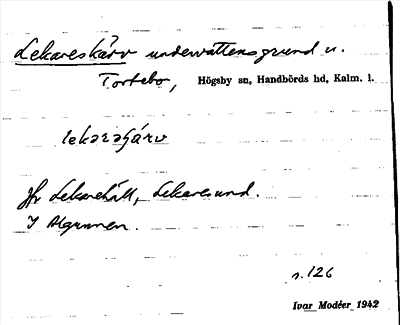 Lekareskärv undervattensgrund u.
Tortebo, Högsby sn, Handbörds hd, Kalm. l.
Jfr Lekarehäll, Lekaresund.
I Algunnen.
s. 126
Ivar Modéer 1942